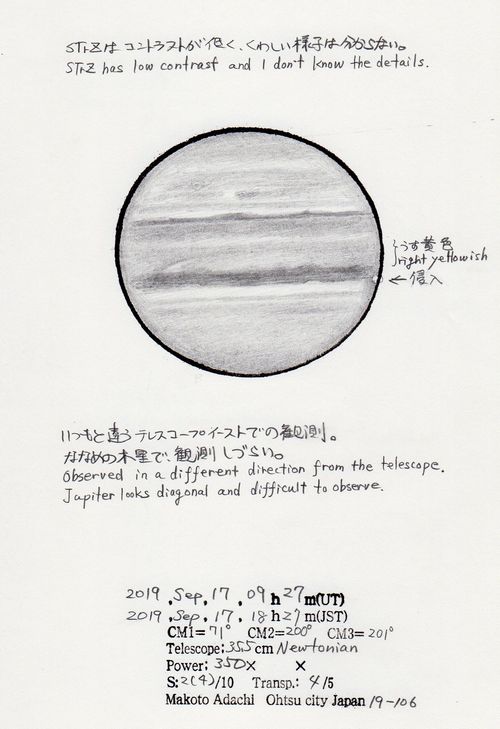 STrZはコントラストが低く、くわしい様子は分からない。
STrZ has low contrast and I don't know the details.
うす黄色
right yellowish
← 侵入
いつもと違うテレスコープイーストでの観測。
ななめの木星で、観測しづらい。
Observed in a different direction from the telescope.
Jupiter looks diagonal and difficult to observe.
2019 ,Sep, 17 , 09 h 27 m(UT)
2019 ,Sep, 17, 18 h 27 m(JST)
CM1= 71° CM2= 200° CM3= 201°
Telescope: 35.5 cm Newtonian
Power: 350× ×
S: 2(4)/10 Transp.: 4/5
Makoto Adachi Ohtsu city Japan 19-106